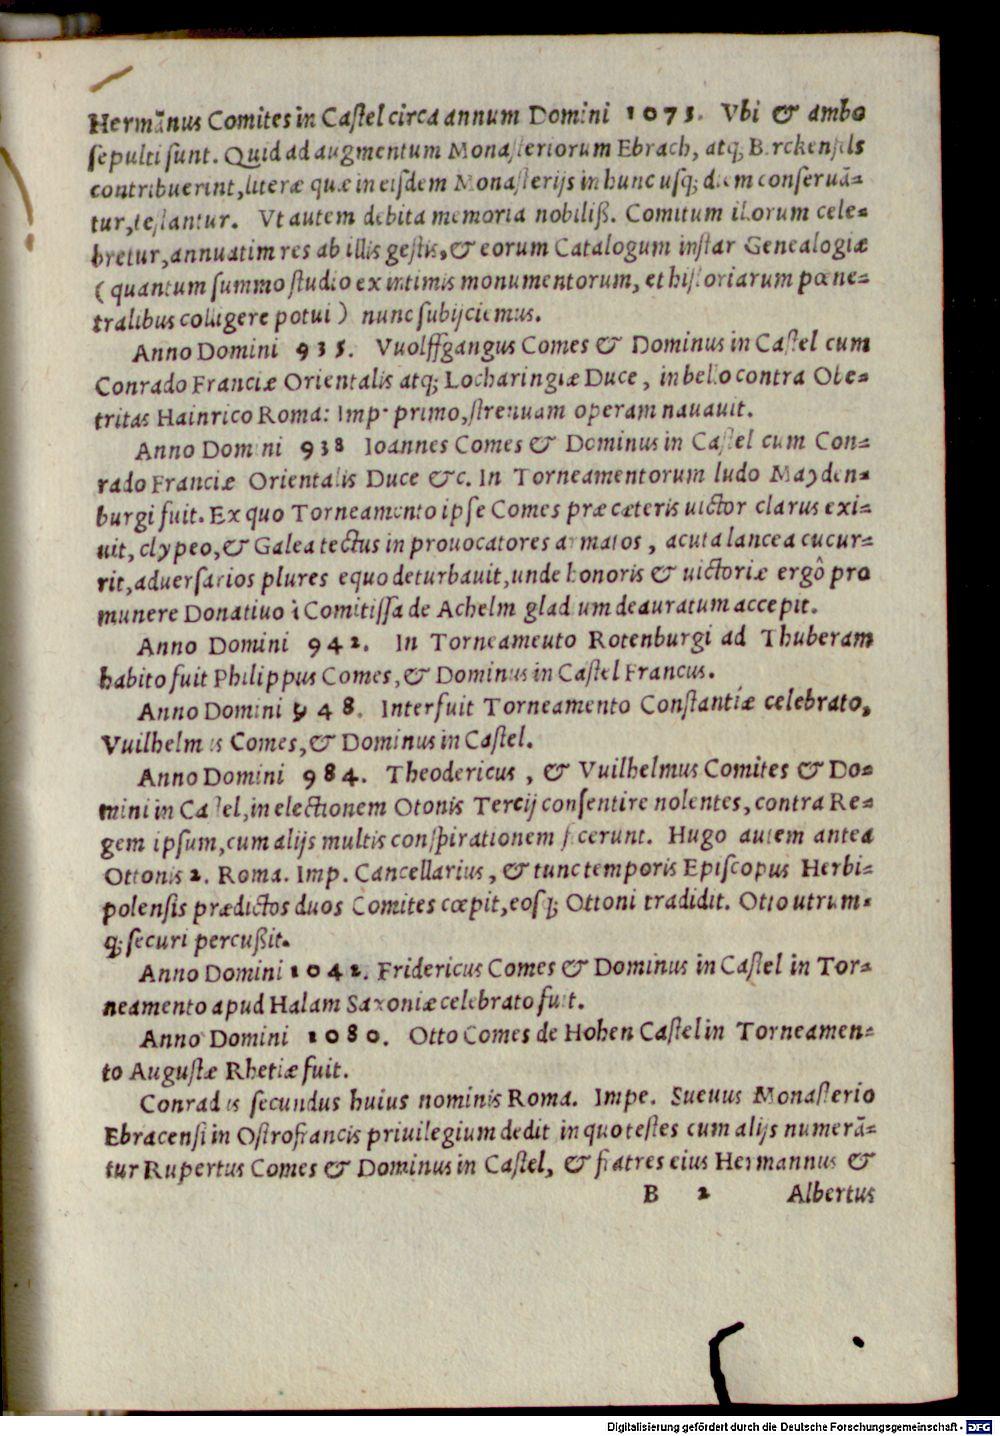 Hermānus Comites in Castel circa annum Domini 1075. Vbi & ambo
sepulti sunt. Quid ad augmentum Monasteriorum Ebrach, atq; Birckenfels
contribuerint, literæ quæ in eisdem Monasterijs in hunc usq; diem conseruā-
tur, testantur. Vt autem debita memoria nobiliß. Comitum illorum cele-
bretur, annuatim res ab illis gestis, & eorum Catalogum instar Genealogiæ
(quantum summo studio ex intimis monumentorum, et historiarum pœne-
tralibus colligere potui) nunc subijciemus.
Anno Domini 935. Vuolffgangus Comes & Dominus in Castel cum
Conrado Franciæ Orientalis atq; Locharingiæ Duce, in bello contra Obe-
tritas Hainrico Roma: Imp. primo, strenuam operam nauauit.
Anno Domini 938 Ioannes Comes & Dominus in Castel cum Con-
rado Franciæ Orientalis Duce &c. In Torneamentorum ludo Mayden-
burgi fuit. Ex quo Torneamento ipse Comes præ cæteris uictor clarus exi-
uit, clypeo, & Galea tectus in prouocatores armatos, acuta lancea cucur-
rit, aduersarios plures equo deturbauit, unde honoris & uictoriæ ergô pro
munere Donatiuo à Comitissa de Achelm gladium deauratum accepit.
Anno Domini 942. In Torneameuto Rotenburgi ad Thuberam
habito fuit Philippus Comes, & Dominus in Castel Francus.
Anno Domini 948. Interfuit Torneamento Constantiæ celebrato,
Vuilhelmus Comes, & Dominus in Castel.
Anno Domini 984. Theodericus, & Vuilhelmus Comites & Do-
mini in Castel, in electionem Otonis Tercij consentire nolentes, contra Re-
gem ipsum, cum alijs multis conspirationem fecerunt. Hugo autem antea
Ottonis 2. Roma. Imp. Cancellarius, & tunc temporis Episcopus Herbi-
polensis prædictos duos Comites cœpit, eosq; Ottoni tradidit. Otto utrum-
q; securi percußit.
Anno Domini 1042. Fridericus Comes & Dominus in Castel in Tor-
neamento apud Halam Saxoniæ celebrato fuit.
Anno Domini 1080. Otto Comes de Hohen Castel in Torneamen-
to Augustæ Rhetiæ fuit.
Conradus secundus huius nominis Roma. Impe. Sueuus Monasterio
Ebracensi in Ostrofrancis priuilegium dedit in quo testes cum alijs numerā-
tur Rupertus Comes & Dominus in Castel, & fratres eius Hermannus &
B 2 Albertus
Digitalisierung gefördert durch die Deutsche Forschungsgemeinschaft - DFG